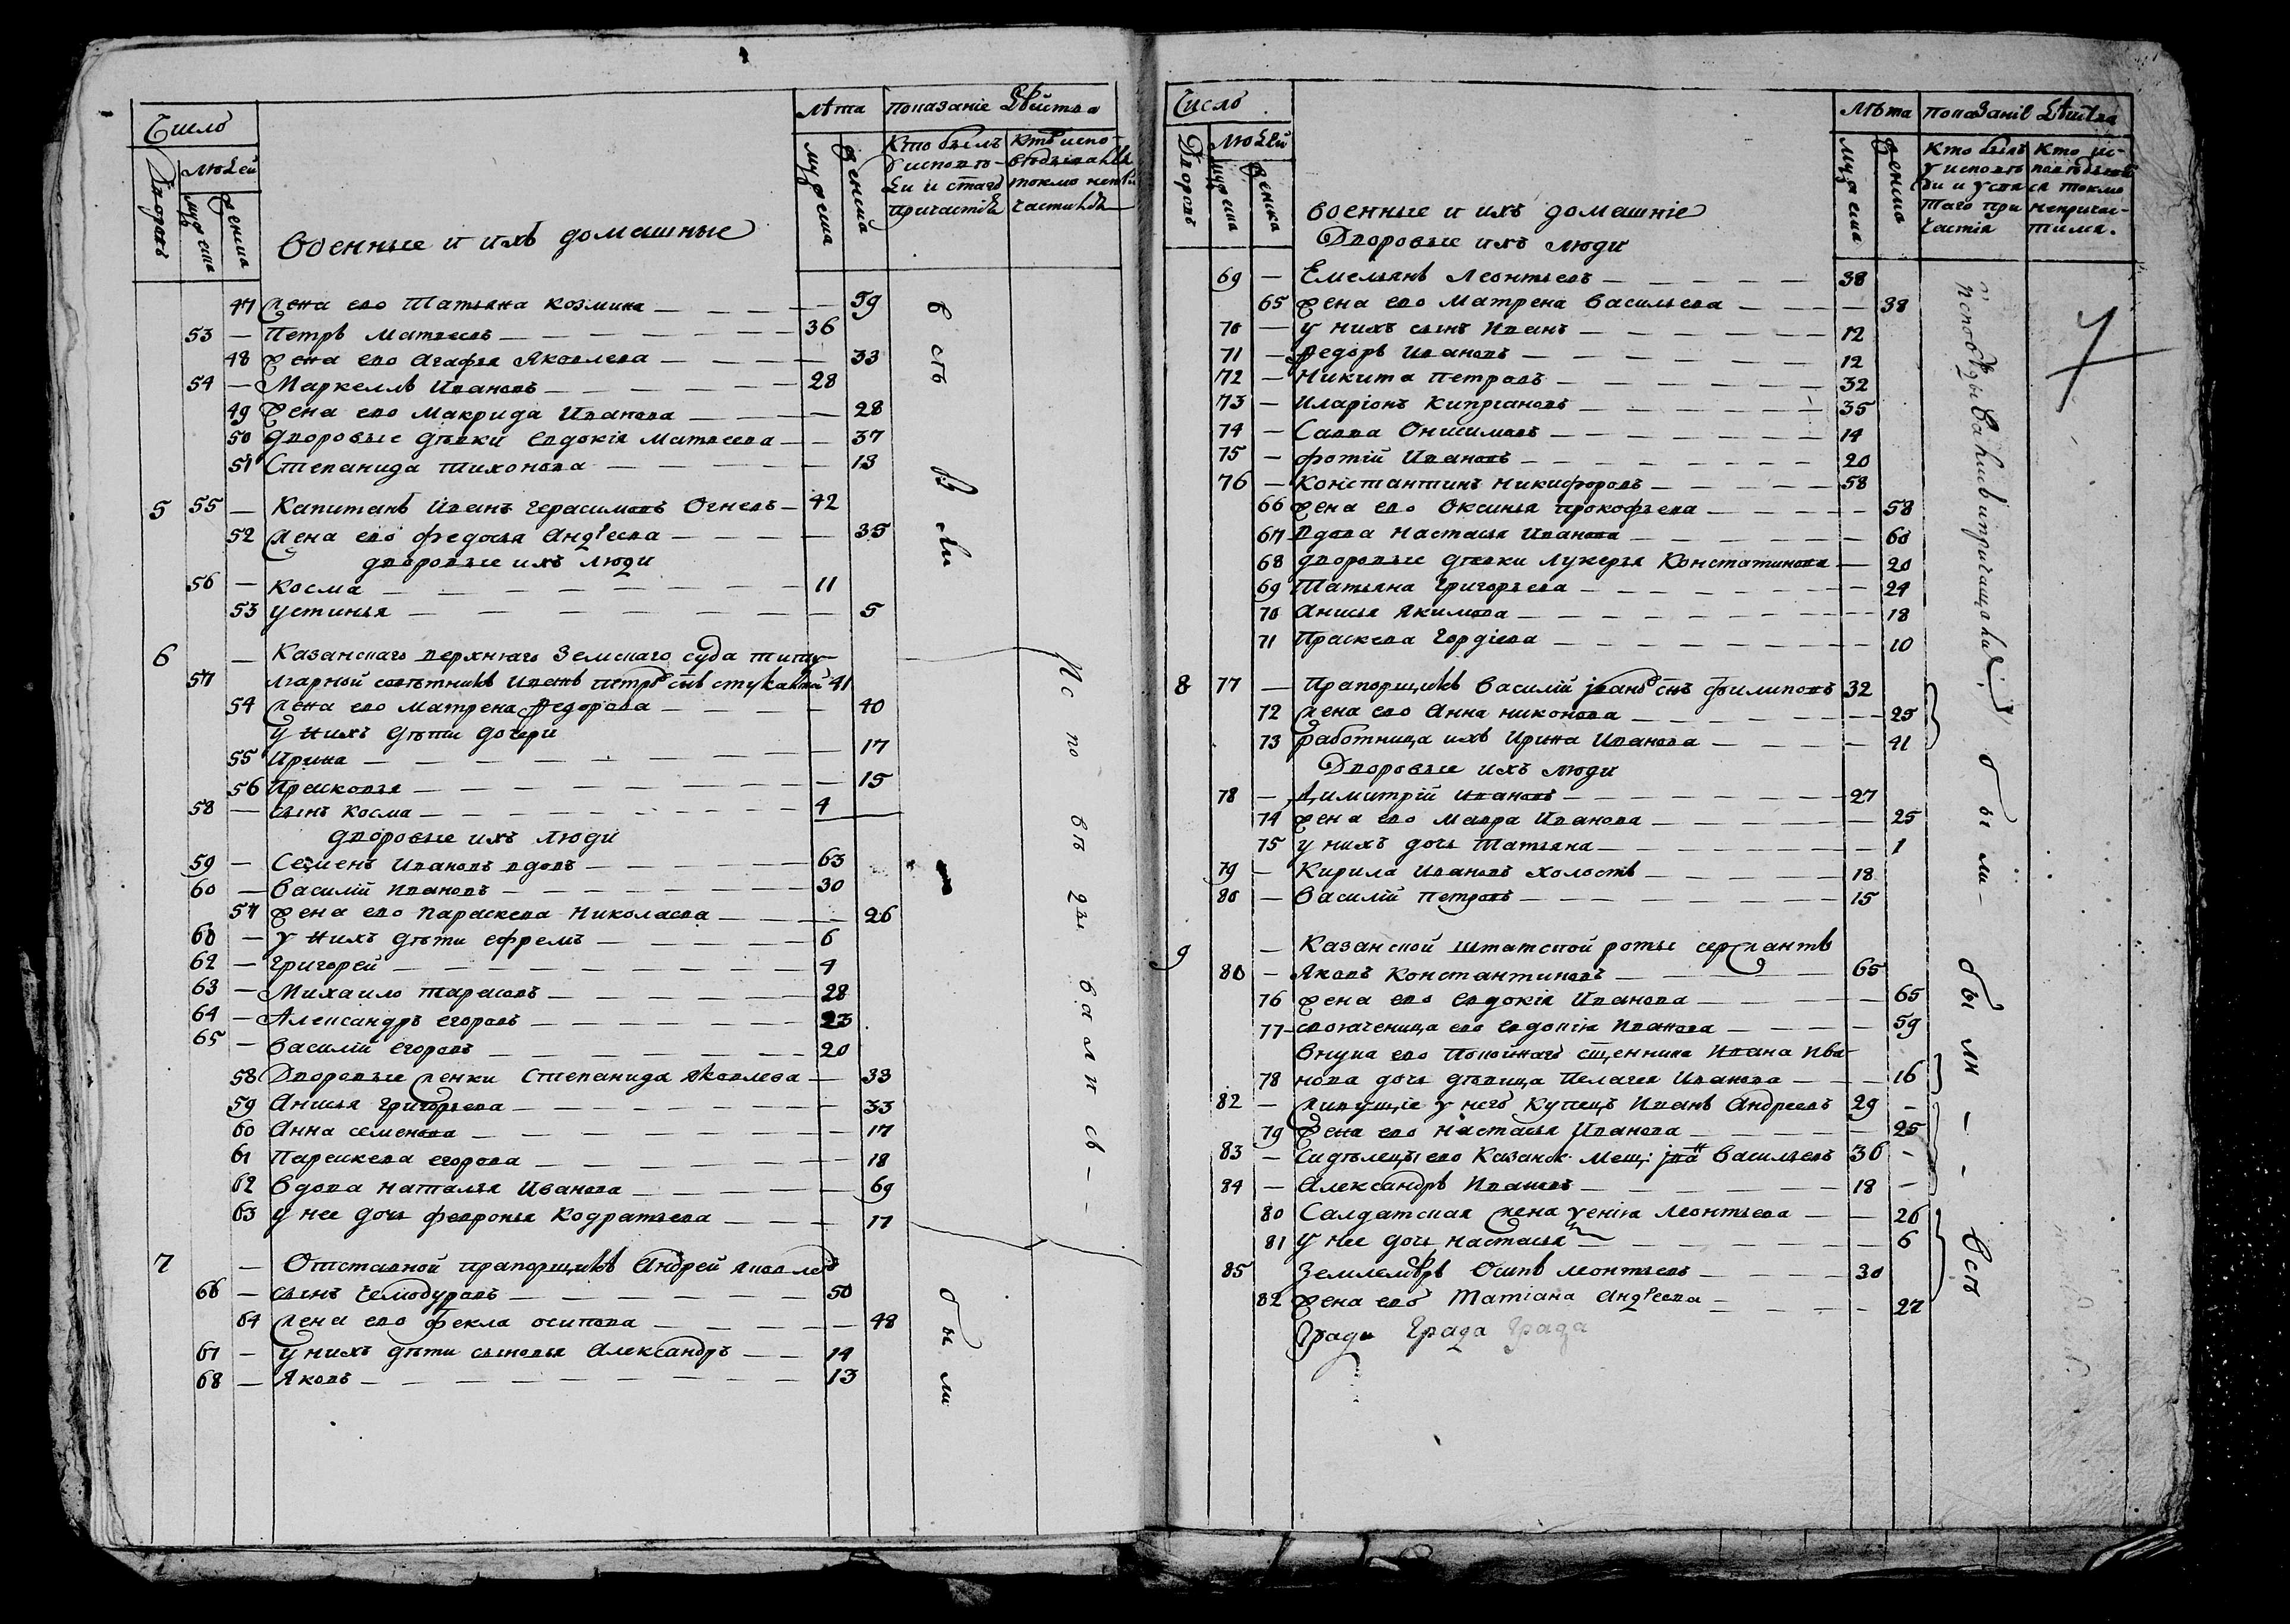 Число
Дворовъ
людей
мужеска
женска
Военные и ихъ домашные
лѣта
мужеска
женска
показаніе дѣйства
кто былъ
у исповѣ-
ди и с̃таго
причастія
кто испо-
вѣдывался
токмо непри-
частился
47 жена ево Татьяна Козмина — 59
53 — Петръ Матвеевъ — 36
48 жена ево Агафья Яковлева — 33
54 — Маркеллъ Ивановъ — 28
49 жена ево Макрида Иванова — 28
50 дворовые дѣвки Евдокія Матвеева — 37
51 Степанида Тихонова — 13
5 55 — Капитанъ Иванъ Герасимовъ Огневъ — 42
52 жена ево Федосья Андреева — 35
дворовые ихъ люди
56 — Косма — 11
53 Устинья — 5
6 — Казанскаго верхняго Земскаго суда титу-
57 лярной советникъ Иванъ Петровъ сынъ 41
54 жена ево Матрена Федорова — 40
у нихъ дѣти дочери
55 Ирина — 17
56 Прасковья — 15
58 — сынъ Косма — 4
дворовые ихъ люди
59 — Семенъ Ивановъ вдовъ — 63
60 — Василий Ивановъ — 30
57 жена ево Параскева Николаева — 26
60 — у нихъ дѣти Ефремъ — 6
62 — Григорей — 4
63 — Михаило Тарасовъ — 28
64 — Александръ Егоровъ — 23
65 — Василий Егоровъ — 20
58 Дворовые женки Степанида Яковлева — 33
59 Анисья Григорьева — 33
60 Анна Семенова — 17
61 Параскева Егорова — 18
62 Вдова Наталья Иванова — 69
63 у нее дочь Февронья Кодратьева — 17
7 — Отставной прапорщикъ Андрей Яковлевъ
66 — сынъ Чемодуровъ — 50
64 жена ево Фекла Осипова — 48
67 — у нихъ дѣти сыновья Александръ — 14
68 — Яковъ — 13
всѣ
были
Исповѣдывались
были
Число
Дворовъ
людей
мужеска
женска
военные и ихъ домашніе
Дворовые ихъ люди
лѣта
мужеска
женска
показаніе дѣйства
кто былъ
у исповѣ
ди и у свя
таго при
частія
кто ис-
поведыв
ся токмо
непричас-
тился.
69 — Емельянъ Леонтьевъ — 38
65 жена ево Матрена Васильева — 38
70 — у нихъ сынъ Иванъ — 12
71 — Федоръ Ивановъ — 12
72 — Никита Петровъ — 32
73 — Иларіонъ Кипріановъ — 35
74 — Савва Онисимовъ — 14
75 — Фотій Ивановъ — 20
76 — Константинъ Никифоровъ — 58
66 жена ево Оксинья Прокофьева — 58
67 вдова Настасья Иванова — 60
68 дворовые дѣвки Лукерья Констатинова — 20
69 Татьяна Григорьева — 24
70 Анисья Якимова — 18
71 Праскева Гордіева — 10
8 77 — Прапорщикъ Василій Ивановъ с̃нъ Филиповъ 32
72 жена ево Анна Никонова — 25
73 работница ихъ Ирина Иванова — 41
Дворовые ихъ люди
78 — Димитрій Ивановъ — 27
74 жена ево Мавра Иванова — 25
75 у нихъ дочь Татьяна — 1
79 — Кирила Ивановъ холостъ — 18
80 — Василій Петровъ — 15
9 — Казанской штатской роты сержантъ
80 — Яковъ Константиновъ — 65
76 жена ево Евдокія Иванова — 65
77 свояченица ево Евдокія Иванова — 59
внука ево Покойнаго с̃щенника Ивана Ива
78 нова дочь дѣвица Пелагея Иванова — 16
82 — живущіе у него Купецъ Иванъ Андреевъ 29 —
79 жена ево Настасья Иванова — 25
83 — Сидѣлецъ ево Казанск: мещ: Ива Васильевъ 36 —
84 — Александръ Ивановъ — 18 —
80 Салдатская жена Леонтьева — 26
81 у нее дочь Настасья — 6
85 Землемѣръ Осипъ Леонтьевъ — 30
82 жена ево Татіана Андреева — 27
Града Града Града
исповѣдывались и причащались
были
были
всѣ